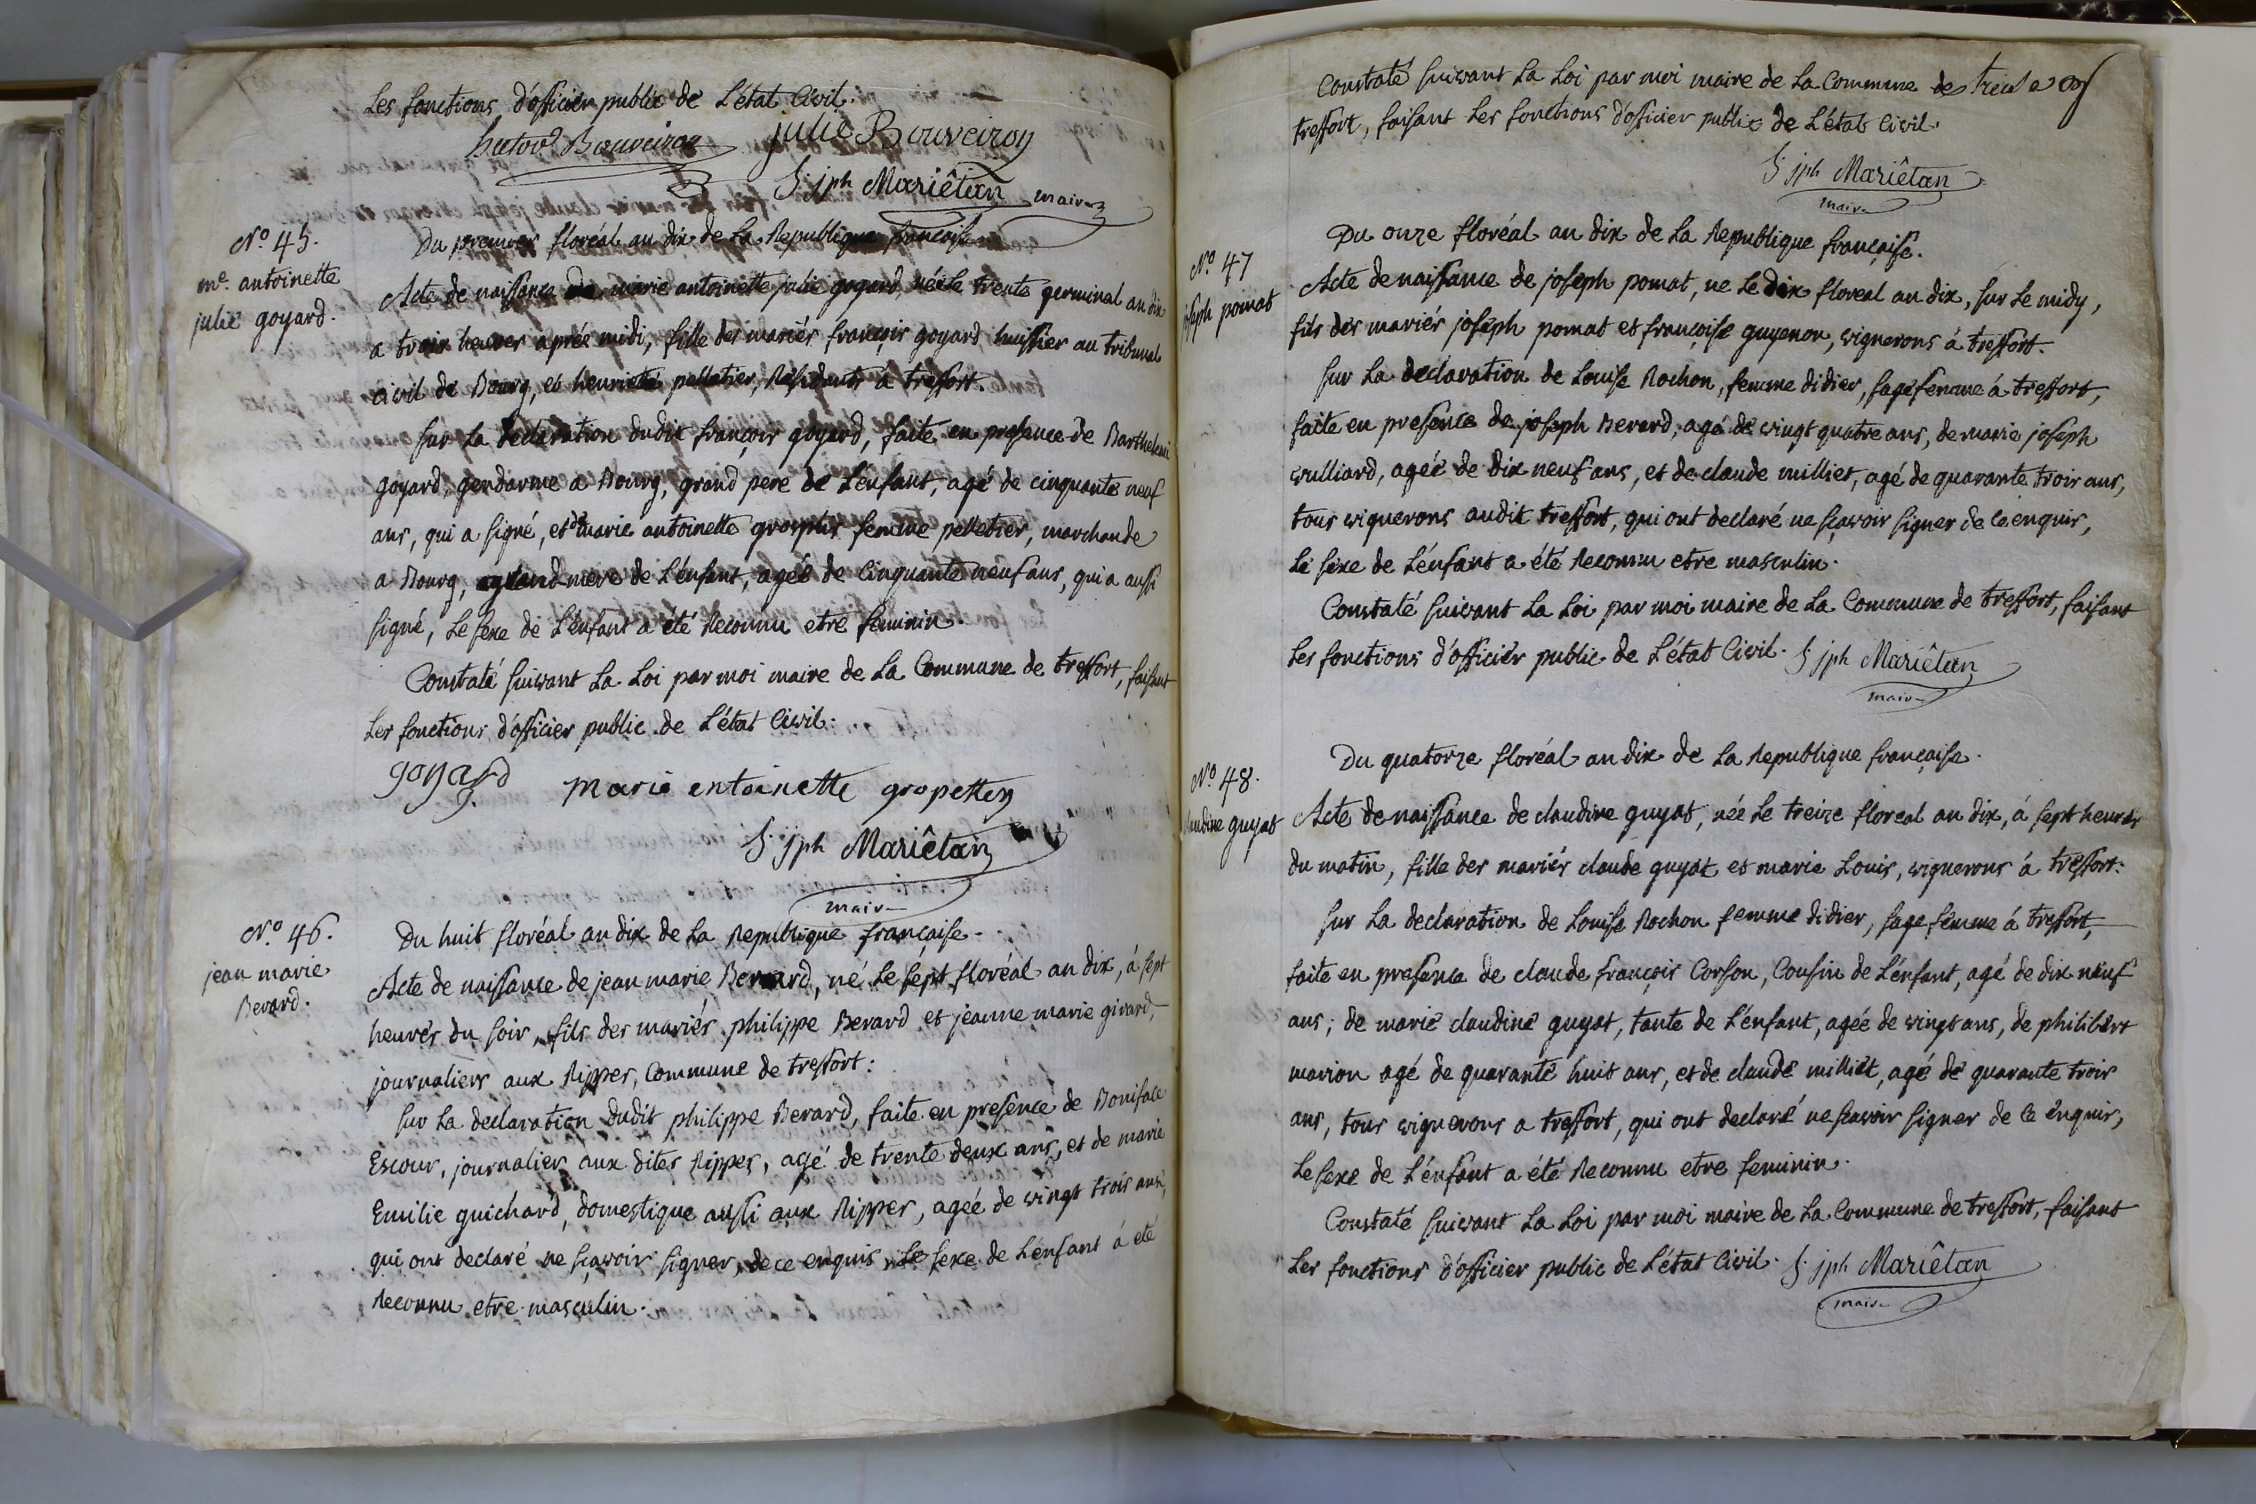 Les fonctions d'officier public de L'état Civil.
Bouveiron julie Bouveiron
S. jph Mariêtan maire
N.º 45.
me. antoinette
julie goyard.
Du premier floréal an dix de La Republique française
Acte de naissance de marie antoinette julie goyard née le trente germinal an dix
a trois heures aprés midi, fille des mariés françois goyard, huissier au tribunal
civil de Bourg, et henriette pelletier, Residants a treffort.
Sur La declaration dudit françois goyard, faite en presence de Barthelemi
goyard, gendarme a Bourg, grand pere de L'enfant, agé de cinquante neuf
ans, qui a signé, et de marie antoinette femme pelletier, marchande
a Bourg, grand mere de L'enfant, agée de Cinquante neuf ans, qui a aussi
signé, Le sexe de L'enfant a été Reconnu etre feminin.
Constaté suivant La Loi par moi maire de La Commune de treffort, faisant
Les fonctions d'officier public de L'état Civil.
goyard marie entoinette gropettey
S. jph Mariêtan
maire
N.º 46.
jean marie
Berard.
Du huit floréal an dix de La Republique française.
Acte de naissance de jean marie Berard, né Le sept floréal an dix, á sept
heures du soir, fils des mariés philippe Berard et jeanne marie girard,
journaliers aux Rippes, Commune de treffort:
Sur La declaration dudit philippe Berard, faite en presence de Boniface
Escour, journalier aux dites Rippes, agé de trente deux ans, et de marie
Emilie guichard, domestique aussi aux Rippes, agée de vingt trois ans,
qui ont declaré ne sçavoir signer, de ce enquis, Le sexe de L'enfant á eté
Reconnu etre masculin.
Constaté suivant La Loi par moi maire de La Commune de
treffort, faisant Les fonctions d'officier public de L'état Civil.
S. jph Mariêtan
maire
N.º 47
joseph pomat
Du onze floréal an dix de La Republique française.
Acte de naissance de joseph pomat, ne Le dix floreal an dix, sur Le midy,
fils des mariés joseph pomat et françoise guyenon, vignerons á treffort.
Sur La declaration de Louise Rochon, femme didier, sage femme á treffort,
faite en presence de joseph Berard, agé de vingt quatre ans, de marie joseph
vulliard, agée de dix neuf ans, et de claude milliet, agé de quarante trois ans,
tous vignerons audit treffort, qui ont declaré ne sçavoir signer de ce enquis,
Le sexe de L'enfant a été Reconnu etre masculin.
Constaté suivant La Loi par moi maire de La Commune de treffort, faisant
Les fonctions d'officier public de L'état Civil. S. jph Mariêtan
maire
N.º 48.
claudine guyat
Du quatorze floréal an dix de La Republique française.
Acte de naissance de claudine guyat, née Le treize floreal an dix, á sept heures
du matin, fille des mariés claude guyat et marie Louis, vignerons á treffort:
Sur La declaration de Louise Rochon femme didier, sage femme á treffort,
faite en presence de claude françois Corson, Cousin de L'enfant, agé de dix neuf
ans, de marie claudine guyat, tante de L'enfant, agée de vingt ans, de philibert
marion agé de quarante huit ans, et de claude milliet, agé de quarante trois
ans, tous vignerons a treffort, qui ont declaré ne sçavoir signer de ce enquis,
Le sexe de L'enfant a été Reconnu etre feminin.
Constaté suivant La Loi par moi maire de La Commune de treffort, faisant
Les fonctions d'officier public de L'état Civil. S. jph Mariêtan
maire